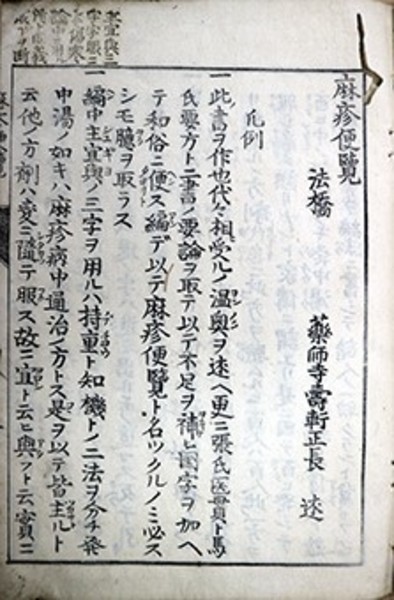 麻疹便覽
法橋 藥師寺壽軒正長 述
凡例
一 此書ヲ作也代々相受ルノ温奥ヲ述ヘ更ニ張氏医貫ト馬
氏要方ト二書ノ要論ヲ取テ以テ不足ヲ補ヒ国字ヲ加ヘ
テ和俗ニ便ス編デ以テ麻疹便覽ト名ックルノミ必ス
シモ臆ヲ取ラス
一 編中主宜與ノ三字ヲ用ルハ持重ト知機トノ二法ヲ分チ發
中湯ノ如キハ麻疹病中通治ノ方トス是ヲ以テ皆主ルト
云他ノ方劑ハ変ニ隨テ服ス故ニ宜ト云ヒ與フト云實ニ